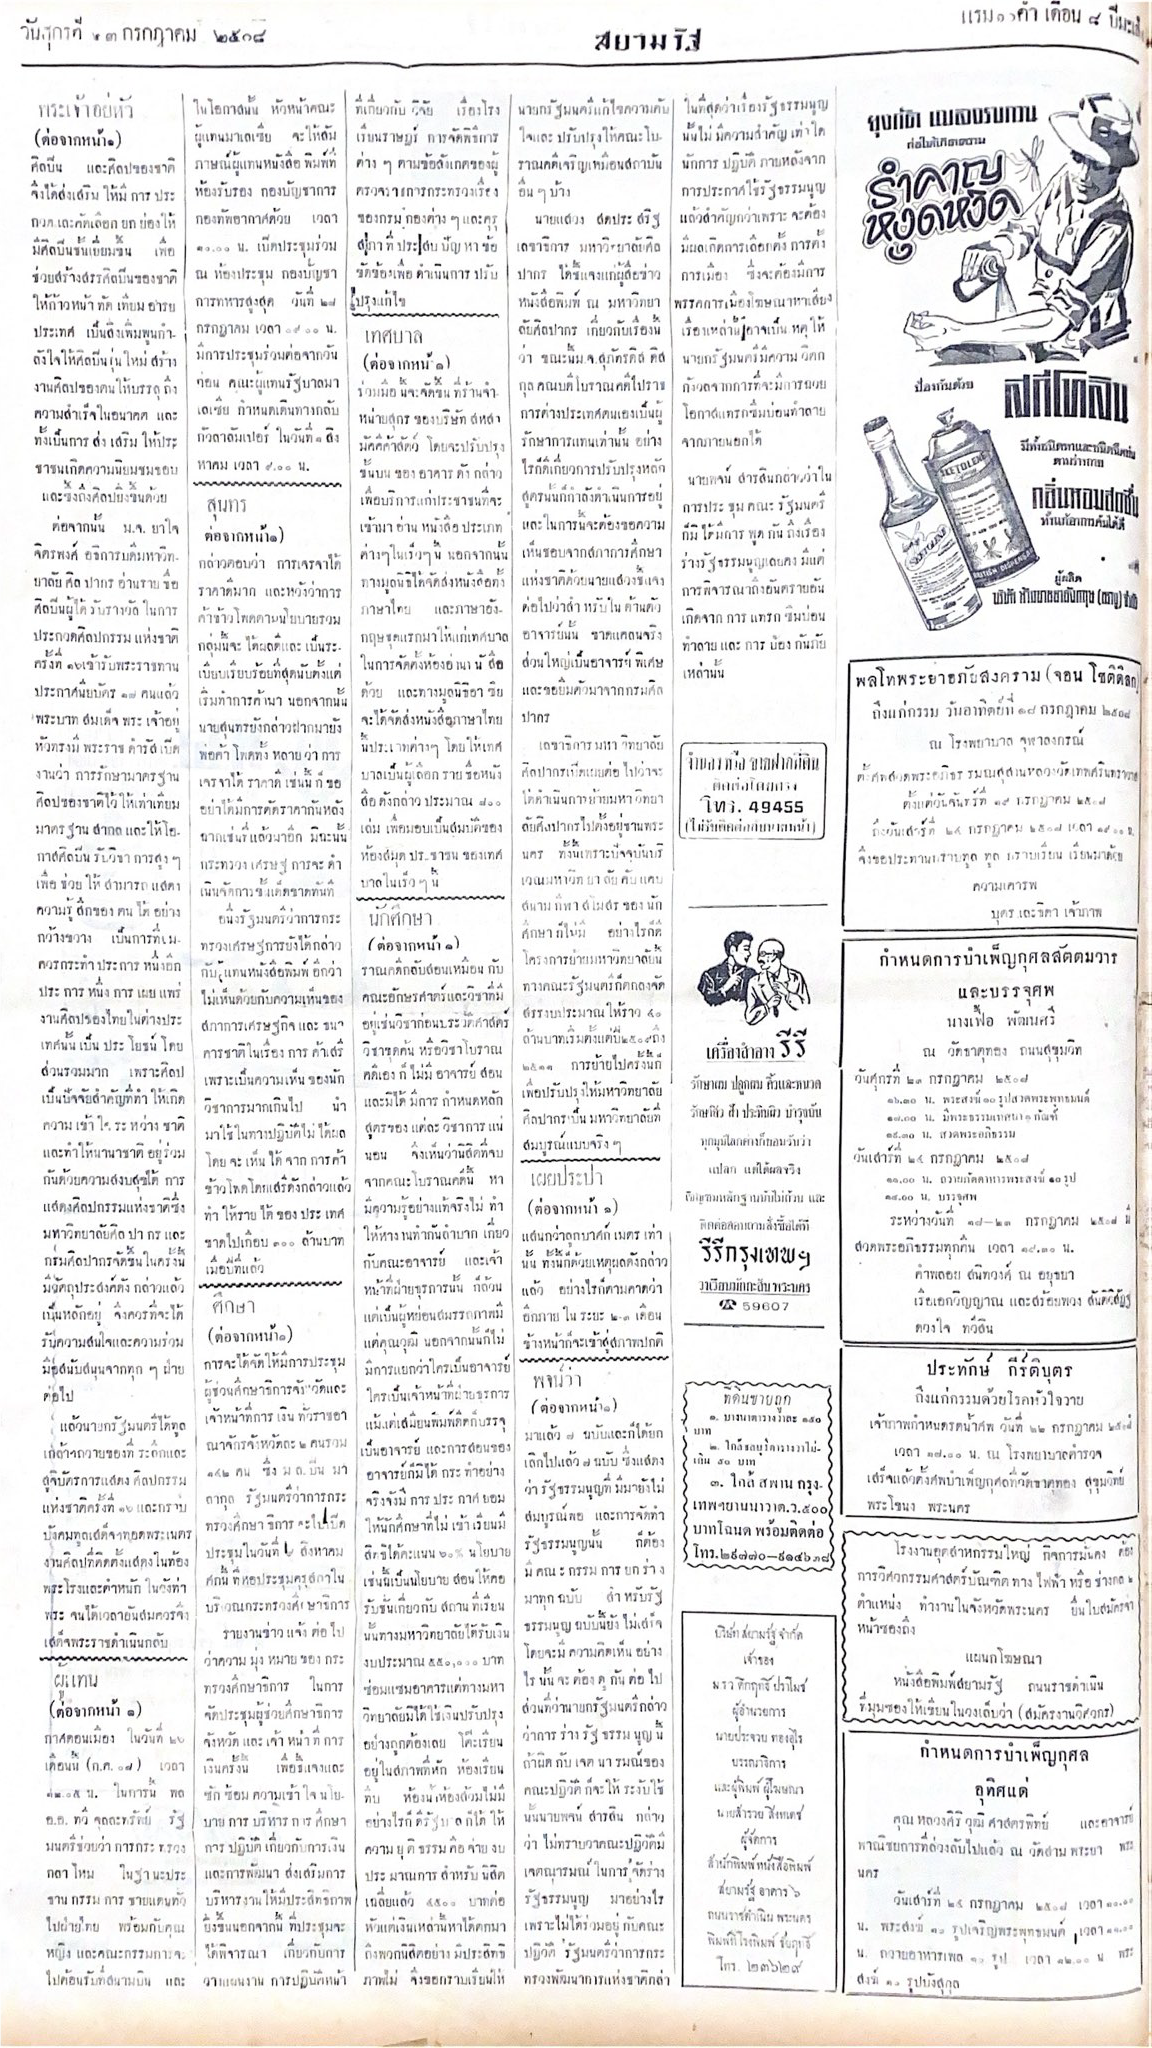 วันศุกร์ที่ ๒๓ กรกฎาคม ๒๕๐๘
สยามรัฐ
แรม ๑๐ ค่ำ เดือน ๘
พระเจ้าอยู่หัว
(ต่อจากหน้า๑)
ศิลปิน และศิลปของชาติ
จึงได้ส่งเสริม ให้มี การ ประ
มีศิลปินชั้นเยี่ยมขึ้น เพื่อ
ช่วยสร้างสรรศิลปินของชาติ
ให้ก้าวหน้า ทัด เทียม อารย
ประเทศ เป็นสิ่งเพิ่มพูนกำ-
ลังใจให้ศิลปินรุ่นใหม่ สร้าง
งานศิลปของตนให้บรรลุ ถึง
ความสำเร็จในอนาคต และ
ทั้งเป็นการ ส่ง เสริม ให้ประ
ชาชนเกิดความนิยมชมชอบ
และซึ้งถึงศิลปยิ่งขึ้นด้วย
ต่อจากนั้น ม.จ. ยาใจ
จิตรพงศ์ อธิการบดีมหาวิท-
ยาลัย ศิล ปากร อ่านราย ชื่อ
ศิลปินผู้ได้ รับรางวัล ในการ
ประกวดศิลปกรรม แห่งชาติ
ครั้งที่ ๑๖เข้ารับพระราชทาน
ประกาศนียบัตร ๑๗ คนแล้ว
พระบาท สมเด็จ พระ เจ้าอยู่
หัวทรงมี พระราช ดำรัส เปิด
งานว่า การรักษามาตรฐาน
ศิลปของชาติไว้ ให้เท่าเทียม
มาตรฐาน สากล และให้โอ-
กาสศิลปิน รับวิชา การสูง ๆ
เพื่อ ช่วย ให้ สามารถ แสดง
ความรู้ สึกของ ตน ได้ อย่าง
กว้างขวาง เป็นการที่เห-
ควรกระทำ ประการ หนึ่งอีก
ประ การ หนึ่ง การ เผย แพร่
งานศิลปของไทยในต่างประ
เทศนั้น เป็น ประ โยชน์ โดย
ส่วนรวมมาก เพราะศิลป
เป็นปัจจัยสำคัญที่ทำ ให้เกิด
ความ เข้า ใจ ระ หว่าง ชาติ
และทำให้นานาชาติ อยู่ร่วม
กันด้วยความสงบสุขได้ การ
แสดงศิลปกรรมแห่งชาติซึ่ง
มหาวิทยาลัยศิล ปา กร และ
กรมศิลปากรจัดขึ้น ในครั้งนี้
มีวัตถุประสงค์ดัง กล่าวแล้ว
เป็นหลักอยู่ จึงควรที่จะได้
รับความสนใจและความร่วม
มือสนับสนุนจากทุก ๆ ฝ่าย
ต่อไป
แล้วนายกรัฐมนตรีได้ทูล
สูจิบัตรการแสดง ศิลปกรรม
แห่งชาติครั้งที่ ๑๖ และกราบ
บังคมทูลเสด็จฯทอดพระเนตร
งานศิลปที่ติดตั้งแสดงในท้อง
พระโรงและตำหนัก ในวังท่า
พระ จนได้เวลาอันสมควรจึง
เสด็จพระราชดำเนินกลับ
ผู้แทน
(ต่อจากหน้า ๑)
กาศดอนเมือง ในวันที่ ๒๖
เดือนนี้ (ก.ค. ๐๘) เวลา
๑๒.๐๕ น. ในการนี้ พล
อ.อ. ทวี จุลละทรัพย์ รัฐ
มนตรีช่วยว่า การกระทรวง
กลา โหม ในฐานะประ
ธาน กรรม การ ชายแดนทั่ว
ไปฝ่ายไทย พร้อมกับคุณ
หญิง และคณะกรรมการจะ
ไปต้อนรับที่สนามบิน และ
ในโอกาสนั้น หัวหน้าคณะ
ผู้แทนมาเลเซีย จะให้สัม
ภาษณ์ผู้แทนหนังสือ พิมพ์ที่
ห้องรับรอง กองบัญชาการ
กองทัพอากาศด้วย เวลา
๑๐.๐๐ น. เปิดประชุมร่วม
ณ ห้องประชุม กองบัญชา
การทหารสูงสุด วันที่ ๒๘
กรกฎาคม เวลา ๐๙.๐๐ น.
มีการประชุมร่วมต่อจากวัน
ก่อน คณะผู้แทนรัฐบาลมา
เลเซีย กำหนดเดินทางกลับ
กัวลาลัมเปอร์ ในวันที่ ๑ สิง
หาคม เวลา ๙.๐๐ น.
สุนทร
ต่อจากหน้า๑)
กล่าวตอบว่า การเจรจาได้
ราคาดีมาก และหวังว่าการ
ค้าข้าวโพดตามนโยบายรวม
กลุ่มนี้จะ ได้ผลดีและ เป็นระ-
เบียบเรียบร้อยที่สุดนับตั้งแต่
เริ่มทำการค้ามา นอกจากนั้น
นายสุนทรยังกล่าวฝากมายัง
พ่อค้า โพดทั้ง หลาย ว่า การ
เจรจาได้ ราคาดี เช่นนี้ ก็ ขอ
อย่าได้มีการตัดราคากันหลัง
ฉากเช่นที่แล้วมาอีก มิฉะนั้น
กระทรวง เศรษฐ การจะ ดำ
เนินจัดการ ขั้นเด็ดขาดทันที
อนึ่งรัฐมนตรีว่าการกระ
ทรวงเศรษฐการยังได้กล่าว
กับผู้แทนหนังสือพิมพ์ อีกว่า
ไม่เห็นด้วยกับความเห็นของ
สภาการเศรษฐกิจและ ธนา
คารชาติในเรื่อง การ ค้าเสรี
เพราะเป็นความเห็น ของนัก
วิชาการมากเกินไป นำ
มาใช้ ในทางปฏิบัติไม่ ได้ผล
โดย จะ เห็น ได้ จาก การ ค้า
ข้าวโพดโดยเสรีดังกล่าวแล้ว
ทำ ให้ราย ได้ ของ ประ เทศ
ขาดไปเกือบ ๓๐๐ ล้านบาท
เมื่อปีที่แล้ว
ศึกษา
(ต่อจากหน้า๑)
การจะได้จัดให้มีการประชุม
ผู้ช่วยศึกษาธิการจังหวัดและ
เจ้าหน้าที่การ เงิน ทั่วราชอา
ณาจักรจังหวัดละ ๒ คนรวม
๑๔๒ คน ซึ่ง ม.ล. ปิ่น มา
ลากุล รัฐมนตรีว่าการกระ
ทรวงศึกษา ธิการ จะไปเปิด
บริเวณกระทรวงศึกษาธิการ
รายงานข่าว แจ้ง ต่อ ไป
ว่าความ มุ่ง หมาย ของ กระ
ทรวงศึกษาธิการ ในการ
จัดประชุมผู้ช่วยศึกษาธิการ
จังหวัด และ เจ้าหน้า ที่ การ
เงินครั้งนี้ เพื่อชี้แจงและ
ซัก ซ้อม ความเข้า ใจ นโย-
บาย การ บริหาร การ ศึกษา
การ ปฏิบัติ เกี่ยวกับ การเงิน
และการพัฒนา ส่งเสริมการ
บริหารงาน ให้มีประสิทธิภาพ
ยิ่งขึ้นนอกจากนี้ ที่ประชุมจะ
ได้พิจารณา เกี่ยวกับการ
วางแผนงาน การปฏิบัติหน้า
ที่เกี่ยวกับ วิจัย เรื่องโรง
เรียนราษฎร์ การจัดพิธีการ
ต่าง ๆ ตามข้อสังเกตของผู้
ตรวจราชการกระทรวงเรื่อง
ของกรม กองต่าง ๆ และคุรุ
สภา ที่ ประสบ ปัญหา ข้อ
ขัดข้องเพื่อ ดำเนินการ ปรับ
ปรุงแก้ไข
เทศบาล
(ต่อจากหน้า๑)
ร่วมมือ นี้จะจัดขึ้น ที่ร้านจำ
หน่ายสุกร ของบริษัท สหสา
มัคคีค้าสัตว์ โดยจะปรับปรุง
ชั้นบน ของ อาคาร ดัง กล่าว
เพื่อบริการแก่ประชาชนที่จะ
เข้ามา อ่าน หนังสือ ประเภท
ต่างๆในเร็วๆนี้ นอกจากนั้น
ทางมูลนิธิได้จัดส่งหนังสือทั้ง
ภาษาไทย และภาษาอัง-
กฤษชุดแรกมา ให้แก่เทศบาล
ในการจัดตั้งห้องอ่านหนังสือ
ด้วย และทางมูลนิธิอาเซีย
จะได้จัดส่งหนังสือภาษาไทย
นั้นประเภทต่างๆ โดย ให้เทศ
บาลเป็นผู้เลือก ราย ชื่อหนัง
สือ ดังกล่าว ประมาณ ๘๐๐
เล่ม เพื่อมอบเป็นสมบัติของ
ห้องสมุด ประชาชน ของเทศ
บาลในเร็ว ๆ นี้
นักศึกษา
(ต่อจากหน้า ๑)
ราณคดีกลับสอนเหมือน กับ
คณะอักษรศาสตร์และวิชาที่มี
อยู่เช่นวิชาก่อนประวัติศาสตร์
วิชาขุดค้น หรือวิชาโบราณ
คดีเอง ก็ ไม่มี อาจารย์ สอน
และมิได้ มีการ กำหนดหลัก
สูตรของ แต่ละ วิชาการ แน่
นอน จึงเห็นว่านิสิตที่จบ
จากคณะโบราณคดีนี้ หา
มีความรู้อย่างแท้จริงไม่ ทำ
ให้หางานทำกันลำบาก เกี่ยว
กับคณะอาจารย์ และเจ้า
หน้าที่ฝ่ายธุรการนั้น ก็ล้วน
แต่เป็นผู้หย่อนสมรรถภาพมี
แต่คุณวุฒิ นอกจากนั้นก็ไม่
มีการแยกว่าใครเป็นอาจารย์
ใครเป็นเจ้าหน้าที่ฝ่ายธุรการ
แม้แต่เสมียนพิมพ์ดีดก็บรรจุ
เป็นอาจารย์ และการสอนของ
อาจารย์ก็มิได้ กระ ทำอย่าง
จริงจังมี การ ประ กาศ ยอม
ให้นักศึกษาที่ไม่ เข้า เรียนมี
สิทธิได้คะแนน ๖๐% นโยบาย
เช่นนี้เป็นนโยบาย สอนให้คอ
รัปชั่นเกี่ยวกับ สถานที่เรียน
นั้นทางมหาวิทยาลัยได้รับเงิน
งบประมาณ ๕๕๐,๐๐๐ บาท
ซ่อมแซมอาคารแต่ทางมหา
วิทยาลัยมิได้ใช้เงินปรับปรุง
อย่างถูกต้องเลย โต๊ะเรียน
อยู่ในสภาพที่หัก ห้องเรียน
ทึบ ห้องน้ำห้องส้วมไม่มี
อย่างไรก็ ดีรัฐบาล ก็ได้ ให้
ความ ยุติ ธรรม คือ จ่าย งบ
ประ มาณการ สำหรับ นิสิต
เฉลี่ยแล้ว ๔๕๐๐ บาทต่อ
หัวแต่เงินเหล่านี้หาได้ตกมา
ถึงพวกนิสิตอย่าง มีประสิทธิ
ภาพไม่ จึงขอกราบเรียนให้
นายกรัฐมนตรีแก้ไขความคับ
ใจและ ปรับปรุงให้คณะโบ-
ราณคดีเจริญเหมือนสถาบัน
อื่น ๆ บ้าง
เลขาธิการ มหาวิทยาลัยศิล
ปากร ได้ชี้แจงแก่ผู้สื่อข่าว
หนังสือพิมพ์ ณ มหาวิทยา
ลัยศิลปากร เกี่ยวกับเรื่องนี้
ว่า ขณะนี้ม.จ.สุภัทรดิส ดิส
กุล คณบดีโบราณคดีไปราช
การต่างประเทศตนเองเป็นผู้
รักษาการแทนเท่านั้น อย่าง
ไรก็ดีเกี่ยวการปรับปรุงหลัก
สูตรนั้นก็กำลังดำเนินการอยู่
และในการนี้จะต้องขอความ
เห็นชอบจากสภาการศึกษา
แห่งชาติด้วยนายแสวงชี้แจง
ต่อไปว่าสำ หรับใน ด้านตัว
อาจารย์นั้น ขาดแคลนจริง
ส่วนใหญ่เป็นอาจารย์ พิเศษ
และขอยืมตัวมาจากกรมศิล
ปากร
เลขาธิการ มหา วิทยาลัย
ศิลปากรเปิดเผยต่อ ไปว่าจะ
ได้ดำเนินการย้ายมหา วิทยา
ลัยศิลปากรไปตั้งอยู่ชานพระ
นคร ทั้งนี้เพราะปัจจุบันบริ
เวณมหาวิท ยา ลัย คับ แคบ
สนาม กีฬา สโมสร ของ นัก
ศึกษา ก็ไม่มี อย่างไรก็ดี
โครงการย้ายมหาวิทยาลัยนี้
ทางคณะรัฐมนตรีก็ตกลงจัด
สรรงบประมาณ ให้ราว ๔๐
ล้านบาทเริ่มตั้งแต่ปี๒๕๐๙ถึง
๒๕๑๑ การย้ายไปครั้งนี้ก็
เพื่อปรับปรุงให้มหาวิทยาลัย
ศิลปากรเป็น มหาวิทยาลัยที่
สมบูรณ์แบบจริง ๆ
เผยประปา
(ต่อจากหน้า ๑)
แสนกว่าลูกบาศก์ เมตร เท่า
นั้น ทั้งนี้ก็ด้วยเหตุผลดังกล่าว
แล้ว อย่างไรก็ตามคาดว่า
อีกภาย ใน ระยะ ๒-๓ เดือน
ข้างหน้าก็จะเข้าสู่สภาพปกติ
พจน์ว่า
(ต่อจากหน้า๑)
มาแล้ว ๗ ฉบับและก็ได้ยก
เลิกไปแล้ว ๗ ฉบับ ซึ่งแสดง
ว่า รัฐธรรมนูญที่ มีมายังไม่
สมบูรณ์พอ และการจัดทำ
รัฐธรรมนูญนั้น ก็ต้อง
มี คณะ กรรม การ ยก ร่าง
มาทุก ฉบับ สำ หรับรัฐ
ธรรมนูญ ฉบับนี้ยัง ไม่เสร็จ
โดยจะมี ความคิดเห็น อย่าง
ไร นั้น จะ ต้อง ดู กัน ต่อ ไป
ส่วนที่ว่านายกรัฐมนตรีกล่าว
ว่าการ ร่าง รัฐ ธรรม นูญ นี้
ถ้าผิด กับ เจต นา รมณ์ของ
คณะปฏิวัติ ก็จะให้ ระงับใช้
นั้นนายพจน์ สารสิน กล่าว
ว่า ไม่ทราบว่าคณะปฏิวัติมี
เจตณารมณ์ ในการ จัดร่าง
รัฐธรรมนูญ มาอย่างไร
เพราะไม่ได้ร่วมอยู่ กับคณะ
ปฏิวัติ รัฐมนตรีว่าการกระ
ทรวงพัฒนาการแห่งชาติกล่า
ในที่สุดว่าเรื่องรัฐธรรมนูญ
นั้นไม่ มีความ สำคัญ เท่า ใด
นักการ ปฏิบัติ ภายหลังจาก
การประกาศใช้รัฐธรรมนูญ
แล้วสำคัญกว่าเพราะ จะต้อง
มีผลเกิดการเลือกตั้ง การตั้ง
การเมือง ซึ่งจะต้องมีการ
พรรคการเมืองโฆษณาหาเสียง
เรื่องเหล่านี้อาจเป็น เหตุ ให้
นายกรัฐมนตรีมีความ วิตก
กังวลจากการที่จะมีการฉวย
โอกาสแทรกซึมบ่อนทำลาย
จากภายนอกได้
นายพจน์ สารสินกล่าวว่าใน
การประ ชุม คณะ รัฐมนตรี
ก็มิ ได้มีการ พูด กัน ถึงเรื่อง
ร่างรัฐธรรมนูญเลยคง มีแต่
การพิจารณาถึงอันตรายอัน
เกิดจาก การ แทรก ซึมบ่อน
ทำลาย และ การ ป้อง กันภัย
เหล่านั้น
จำนอง หรือ ขายฝากที่ดิน
ติดต่อโดยตรง
โทร. 49455
(ไม่รับติดต่อกับนายหน้า)
เครื่องสำอาง รีรี
รักษาผม ปลูกผม คิ้วและหนวด
แปลก แต่ได้ผลจริง
ติดต่อสอบถามสั่งซื้อได้ที่
รีรีกรุงเทพฯ
☎ 59607
ที่ดินขายถูก
๑. บางนาตารางวาละ ๑๕๐
บาท
๒. ใกล้ชลบุรีตารางวาไม่-
เกิน ๕๐ บาท
๓. ใกล้ สพาน กรุง-
เทพฯยานนาวาต.ว.๕๐๐
บาทโฉนด พร้อมติดต่อ
โทร.๒๙๗๗๐—๙๑๔๖๓๘
บริษัท สยามรัฐ จำกัด
เจ้าของ
ม.ร.ว คึกฤทธิ์ ปราโมช
ผู้อำนวยการ
นายประจวบ ทองอุไร
บรรณาธิการ
และผู้พิมพ์ ผู้โฆษณา
นายสำรวย สิงหเดช
ผู้จัดการ
สำนักพิมพ์ หนังสือพิมพ์
สยามรัฐ อาคาร ๖
ถนนราชดำเนิน พระนคร
พิมพ์ที่โรงพิมพ์ ชัยฤทธิ์
โทร. ๒๓๖๒๙
ยุงกัด แมลงรบกวน
ก่อให้เกิดความ
รำคาญ
หงุดหงิด
ป้องกันด้วย
สกีโทลีน
SKETOLENE
มีทั้งชนิดทาและชนิดฉีดพ่น
ตามร่างกาย
กลิ่นหอมสดชื่น
ทำให้อากาศดีได้ดี
BRITISH DISPENSARY
ผู้ผลิต
พลโทพระยาอภัยสงคราม (จอน โชติดิลก)
ถึงแก่กรรม วันอาทิตย์ที่ ๑๘ กรกฎาคม ๒๕๐๘
ณ โรงพยาบาล จุฬาลงกรณ์
ตั้งแต่วันจันทร์ที่ ๑๙ กรกฎาคม ๒๕๐๘
ถึงวันเสาร์ที่ ๒๔ กรกฎาคม ๒๕๐๘ เวลา ๑๙.๐๐ น.
จึงขอประทานกราบทูล ทูล กราบเรียน เรียนมาด้วย
ความเคารพ
บุตร และธิดา เจ้าภาพ
กำหนดการบำเพ็ญกุศลสัตตมวาร
และบรรจุศพ
นางเฟื้อ พัฒนศรี
ณ วัดธาตุทอง ถนนสุขุมวิท
วันศุกร์ที่ ๒๓ กรกฎาคม ๒๕๐๘
๑๖.๓๐ น. พระสงฆ์ ๑๐ รูปสวดพระพุทธมนต์
๑๗.๐๐ น. มีพระธรรมเทศนา ๑ กัณฑ์
๑๙.๓๐ น. สวดพระอภิธรรม
วันเสาร์ที่ ๒๔ กรกฎาคม ๒๕๐๘
๑๑.๐๐ น. ถวายภัตตาหารพระสงฆ์ ๑๐ รูป
๑๔.๐๐ น. บรรจุศพ
ระหว่างวันที่ ๑๘—๒๓ กรกฎาคม ๒๕๐๘ มี
สวดพระอภิธรรมทุกคืน เวลา ๑๙.๓๐ น.
คำพลอย สนิทวงศ์ ณ อยุธยา
เรือเอกวิญญาณ และสร้อยพวง สันติวิสัฎฐ์
ดวงใจ ทวีสิน
ประทักษ์ กีร์ติบุตร
ถึงแก่กรรมด้วยโรคหัวใจวาย
เจ้าภาพกำหนดรดน้ำศพ วันที่ ๒๒ กรกฎาคม ๒๕๐๘
เวลา ๑๗.๐๐ น. ณ โรงพยาบาลตำรวจ
เสร็จแล้วตั้งศพบำเพ็ญกุศลที่วัดธาตุทอง สุขุมวิทย์
พระโขนง พระนคร
โรงงานอุตสาหกรรมใหญ่ กิจการมั่นคง ต้อง
การวิศวกรรมศาสตร์บัณฑิต ทาง ไฟฟ้า หรือ ช่างกล ๒
ตำแหน่ง ทำงานในจังหวัดพระนคร ยื่นใบสมัครจ่า
หน้าซองถึง
แผนกโฆษณา
หนังสือพิมพ์สยามรัฐ ถนนราชดำเนิน
ที่มุมซองให้เขียนในวงเล็บว่า (สมัครงานวิศวกร)
กำหนดการบำเพ็ญกุศล
อุทิศแด่
คุณ หลวงศิริ วุฒิ ศาสตรพิทย์ และอาจารย์
พาณิชยการที่ล่วงลับไปแล้ว ณ วัดสามพระยา พระ
นคร
วันเสาร์ที่ ๒๔ กรกฎาคม ๒๕๐๘ เวลา ๑๐.๐๐
น. พระสงฆ์ ๑๐ รูปเจริญพระพุทธมนต์ เวลา ๑๑.๐๐
น. ถวายอาหารเพล ๑๐ รูป เวลา ๑๒.๐๐ น พระ
สงฆ์ ๑๐ รูปบังสุกุล